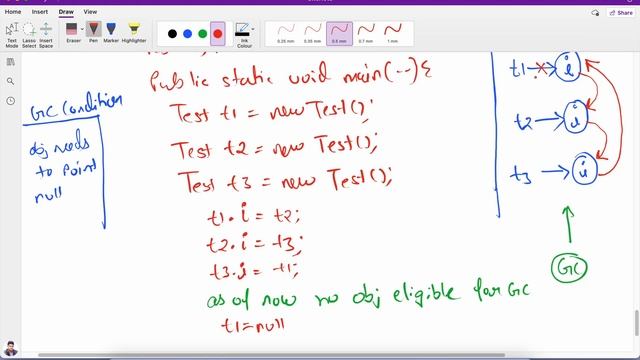 OneNote
OneNote Home Insert Draw View Class Notebook
Share
Text Mode
Lasso Select
Insert Space
Eraser
Pen
Marker
Highlighter
0.25 mm
0.35 mm
0.5 mm
0.7 mm
1 mm
Public static void main(--){
Test t1 = new Test();
Test t2 = new Test();
Test t3 = new Test();
t1.i = t2;
t2.i = t3;
t3.i = t1;
as of now no obj eligible for GC
t1=null
GC Condition
obj needs
to point
null
t1
i
t2
i
t3
i
GC